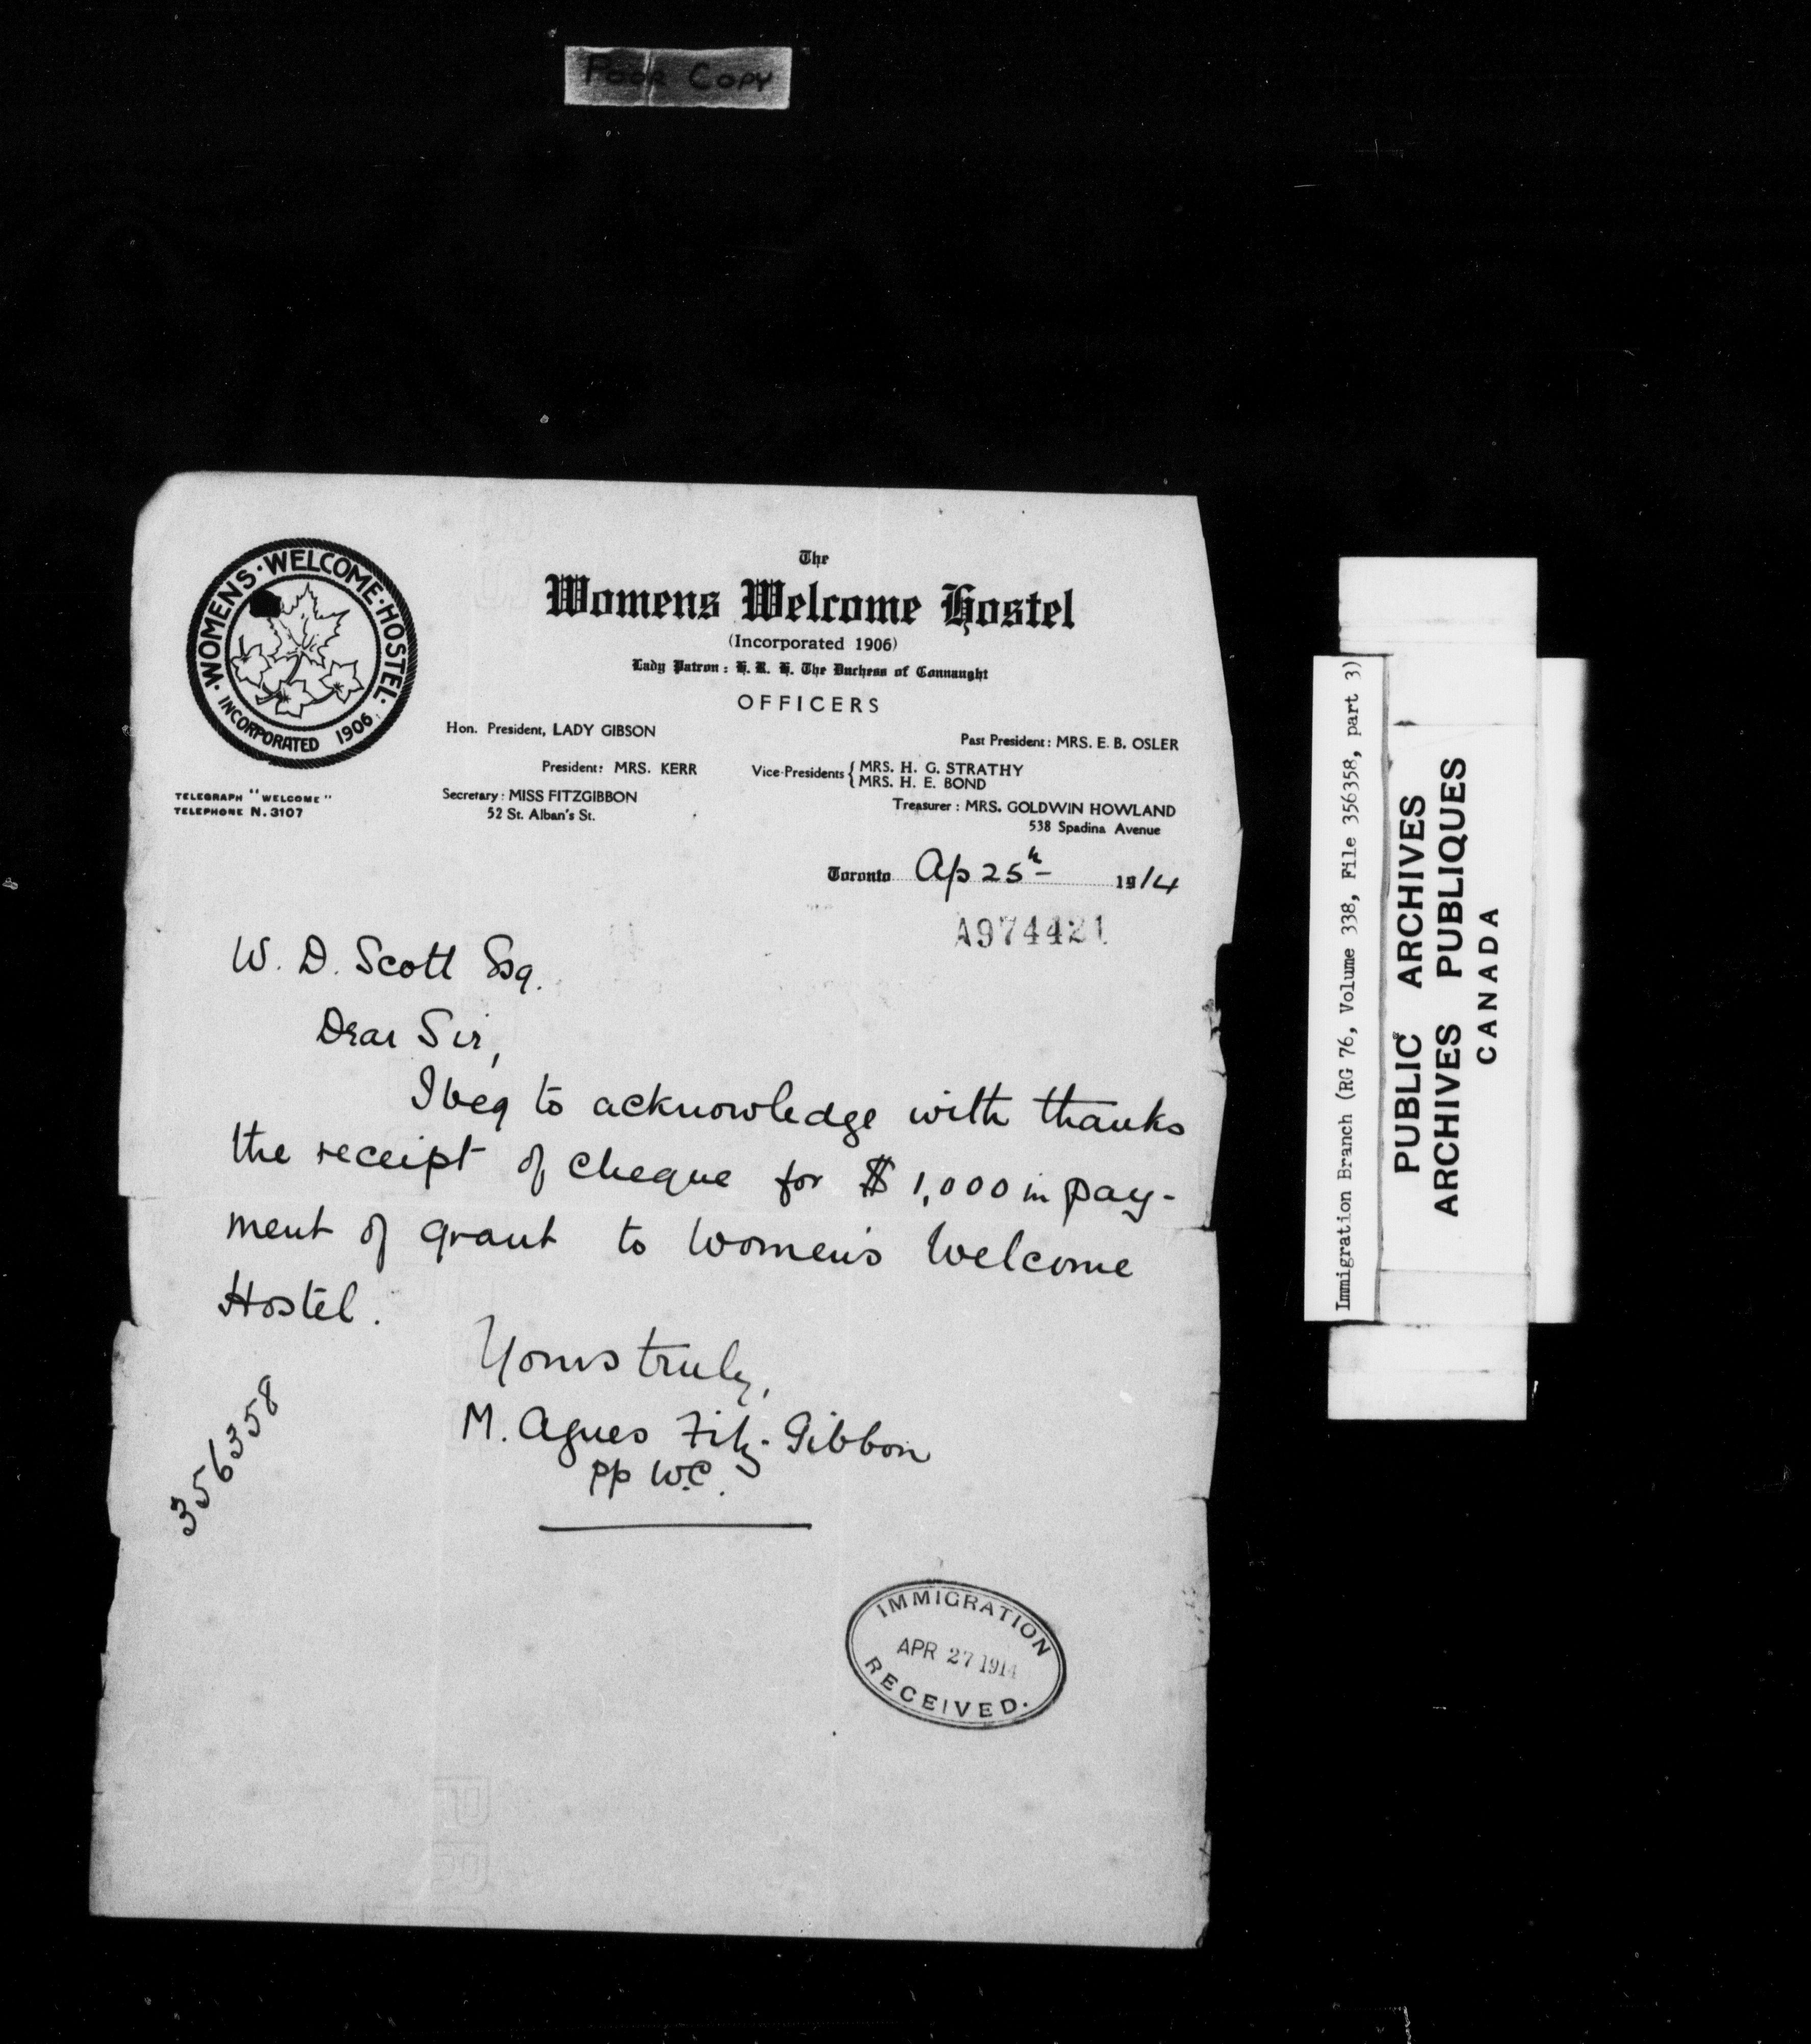 POOR COPY
WOMENS·WELCOME·HOSTEL·
INCORPORATED 1906.
The
Womens Welcome Hostel
(Incorporated 1906)
Lady Patron: H. R. H. The Duchess of Connaught
OFFICERS
Hon. President, LADY GIBSON
Past President: MRS. E. B. OSLER
President: MRS. KERR
Vice-Presidents { MRS. H. G. STRATHY
MRS. H. E. BOND
TELEGRAPH "WELCOME"
TELEPHONE N. 3107
Secretary: MISS FITZGIBBON
52 St. Alban's St.
Treasurer: MRS. GOLDWIN HOWLAND
538 Spadina Avenue
Toronto Ap 25th 1914
A974421
W. D. Scott Esq.
Dear Sir,
I beg to acknowledge with thanks
the receipt of cheque for $1,000 in pay-
ment of grant to Women's Welcome
Hostel.
Yours truly,
M. Agnes Fitz-Gibbon
pp W.C.
356358
IMMIGRATION
APR 27 1914
RECEIVED.
Immigration Branch (RG 76, Volume 338, File 356358, part 3)
PUBLIC ARCHIVES
ARCHIVES PUBLIQUES
CANADA